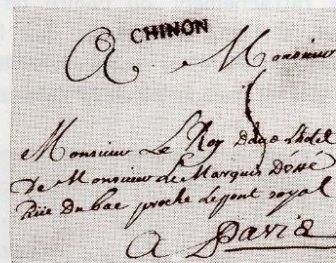 CHINON
A Monsieur
Monsieur Le Roy dans Lhotel
De Monsieur Le Marquis Dussé
Rüe Du bac proche Le pont royal
A Paris